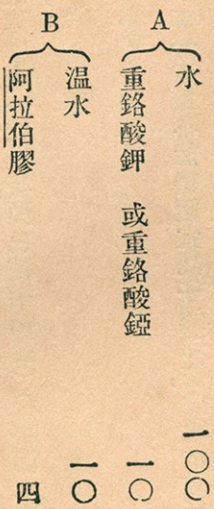 A
水 一〇〇
重鉻酸鉀 或重鉻酸錏 一〇
B
温水 一〇
阿拉伯膠 四